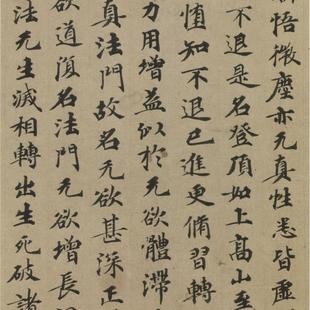 悟微塵亦无真性悉皆虚
不退是名登頂如上高山至
慎知不退已進更脩習轉
力用增益似於无欲體滯
真法門故名无欲甚深正
欲道須名法門无欲增長
法无生滅相轉出生死破諸